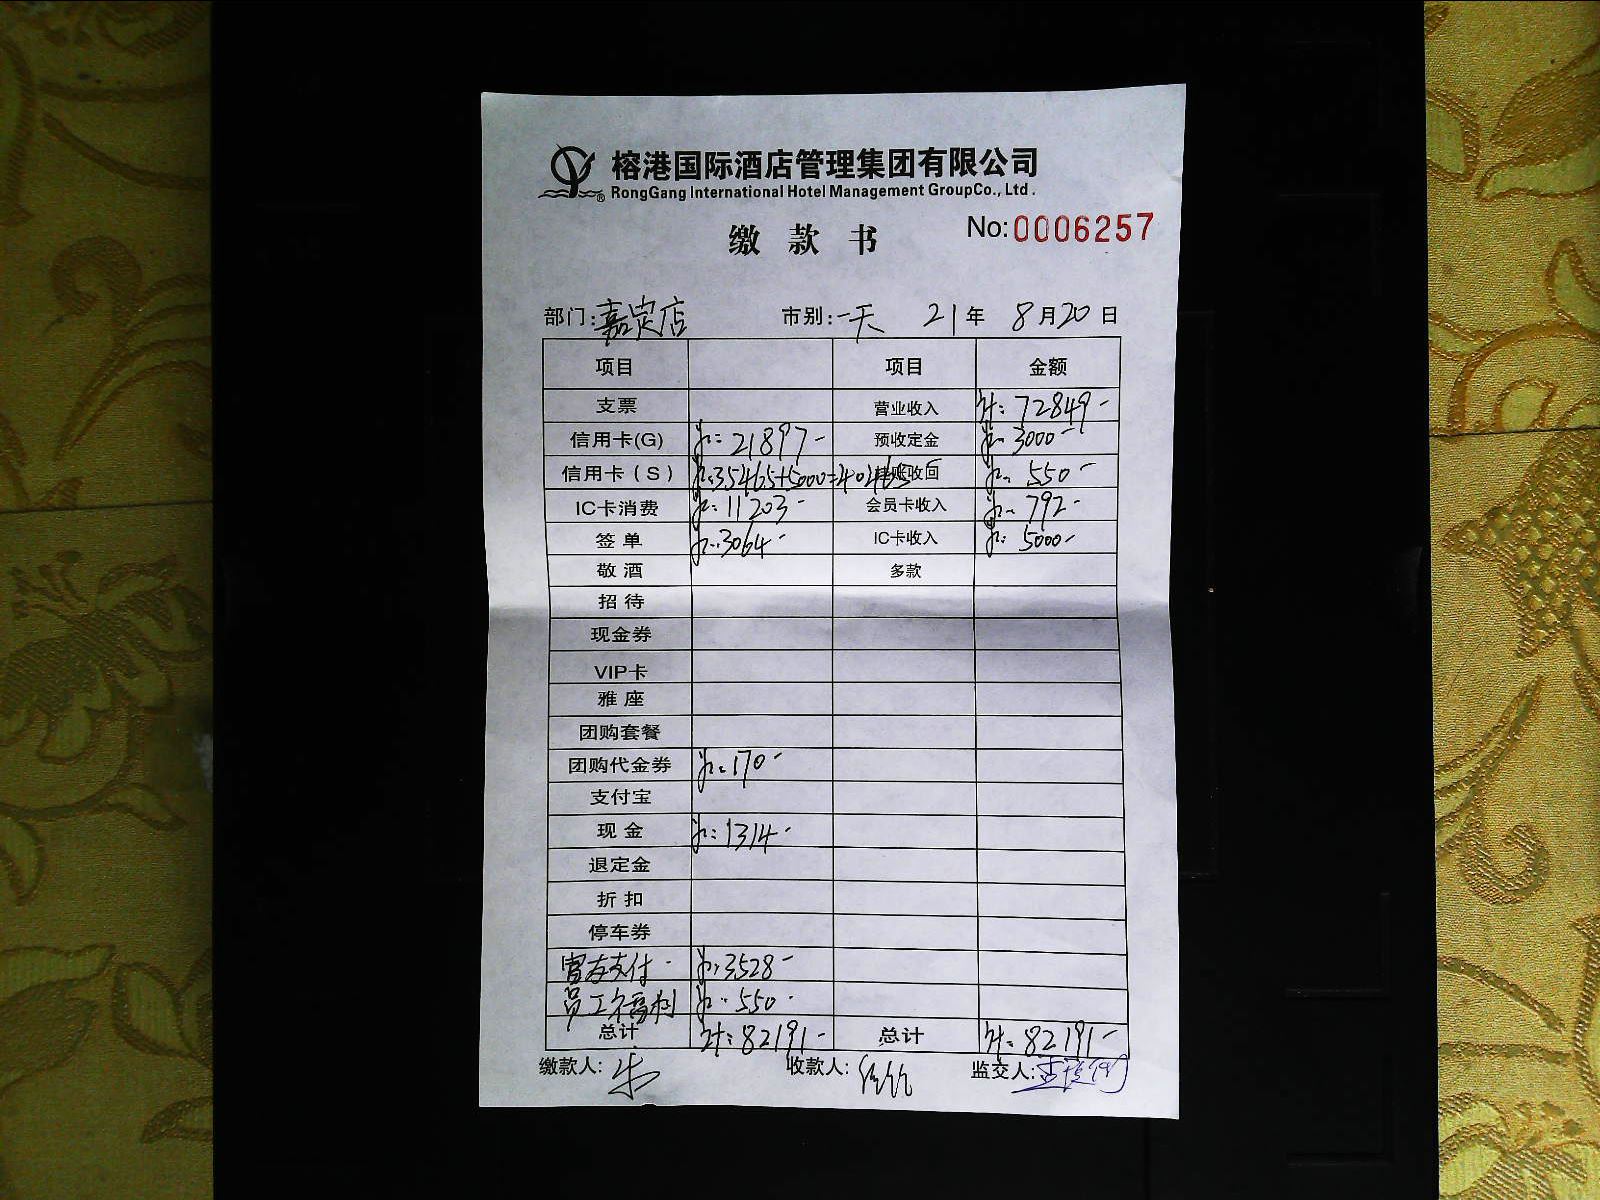 榕港国际酒店管理集团有限公司
RongGang International Hotel Management GroupCo., Ltd.
缴款书 No:0006257
部门:嘉定店 市别:一天 21年 8月20日
项目 项目 金额
支票 营业收入 计:72849-
信用卡(G) 21897- 预收定金 3000-
信用卡(S) 35465+5000=40465 挂账收回 550-
IC卡消费 11203- 会员卡收入 792-
签单 3064- IC卡收入 5000-
敬酒 多款
招待
现金券
VIP卡
雅座
团购套餐
团购代金券 170-
支付宝
现金 1314-
退定金
折扣
停车券
支付 3528-
员工福利 550-
总计 计:82191- 总计 计:82191-
缴款人: 朱 收款人: 监交人: